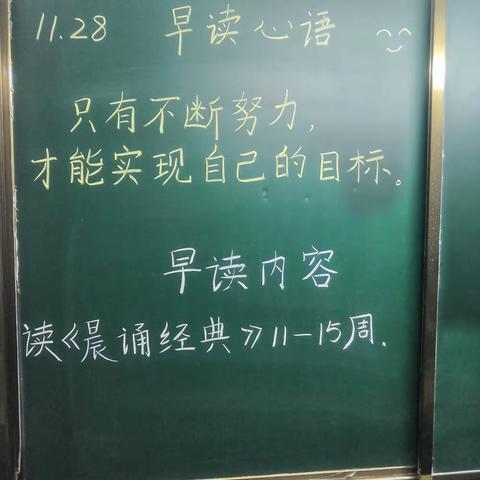 11.28 早读心语
只有不断努力,
才能实现自己的目标。
早读内容
读《晨诵经典》11-15周.